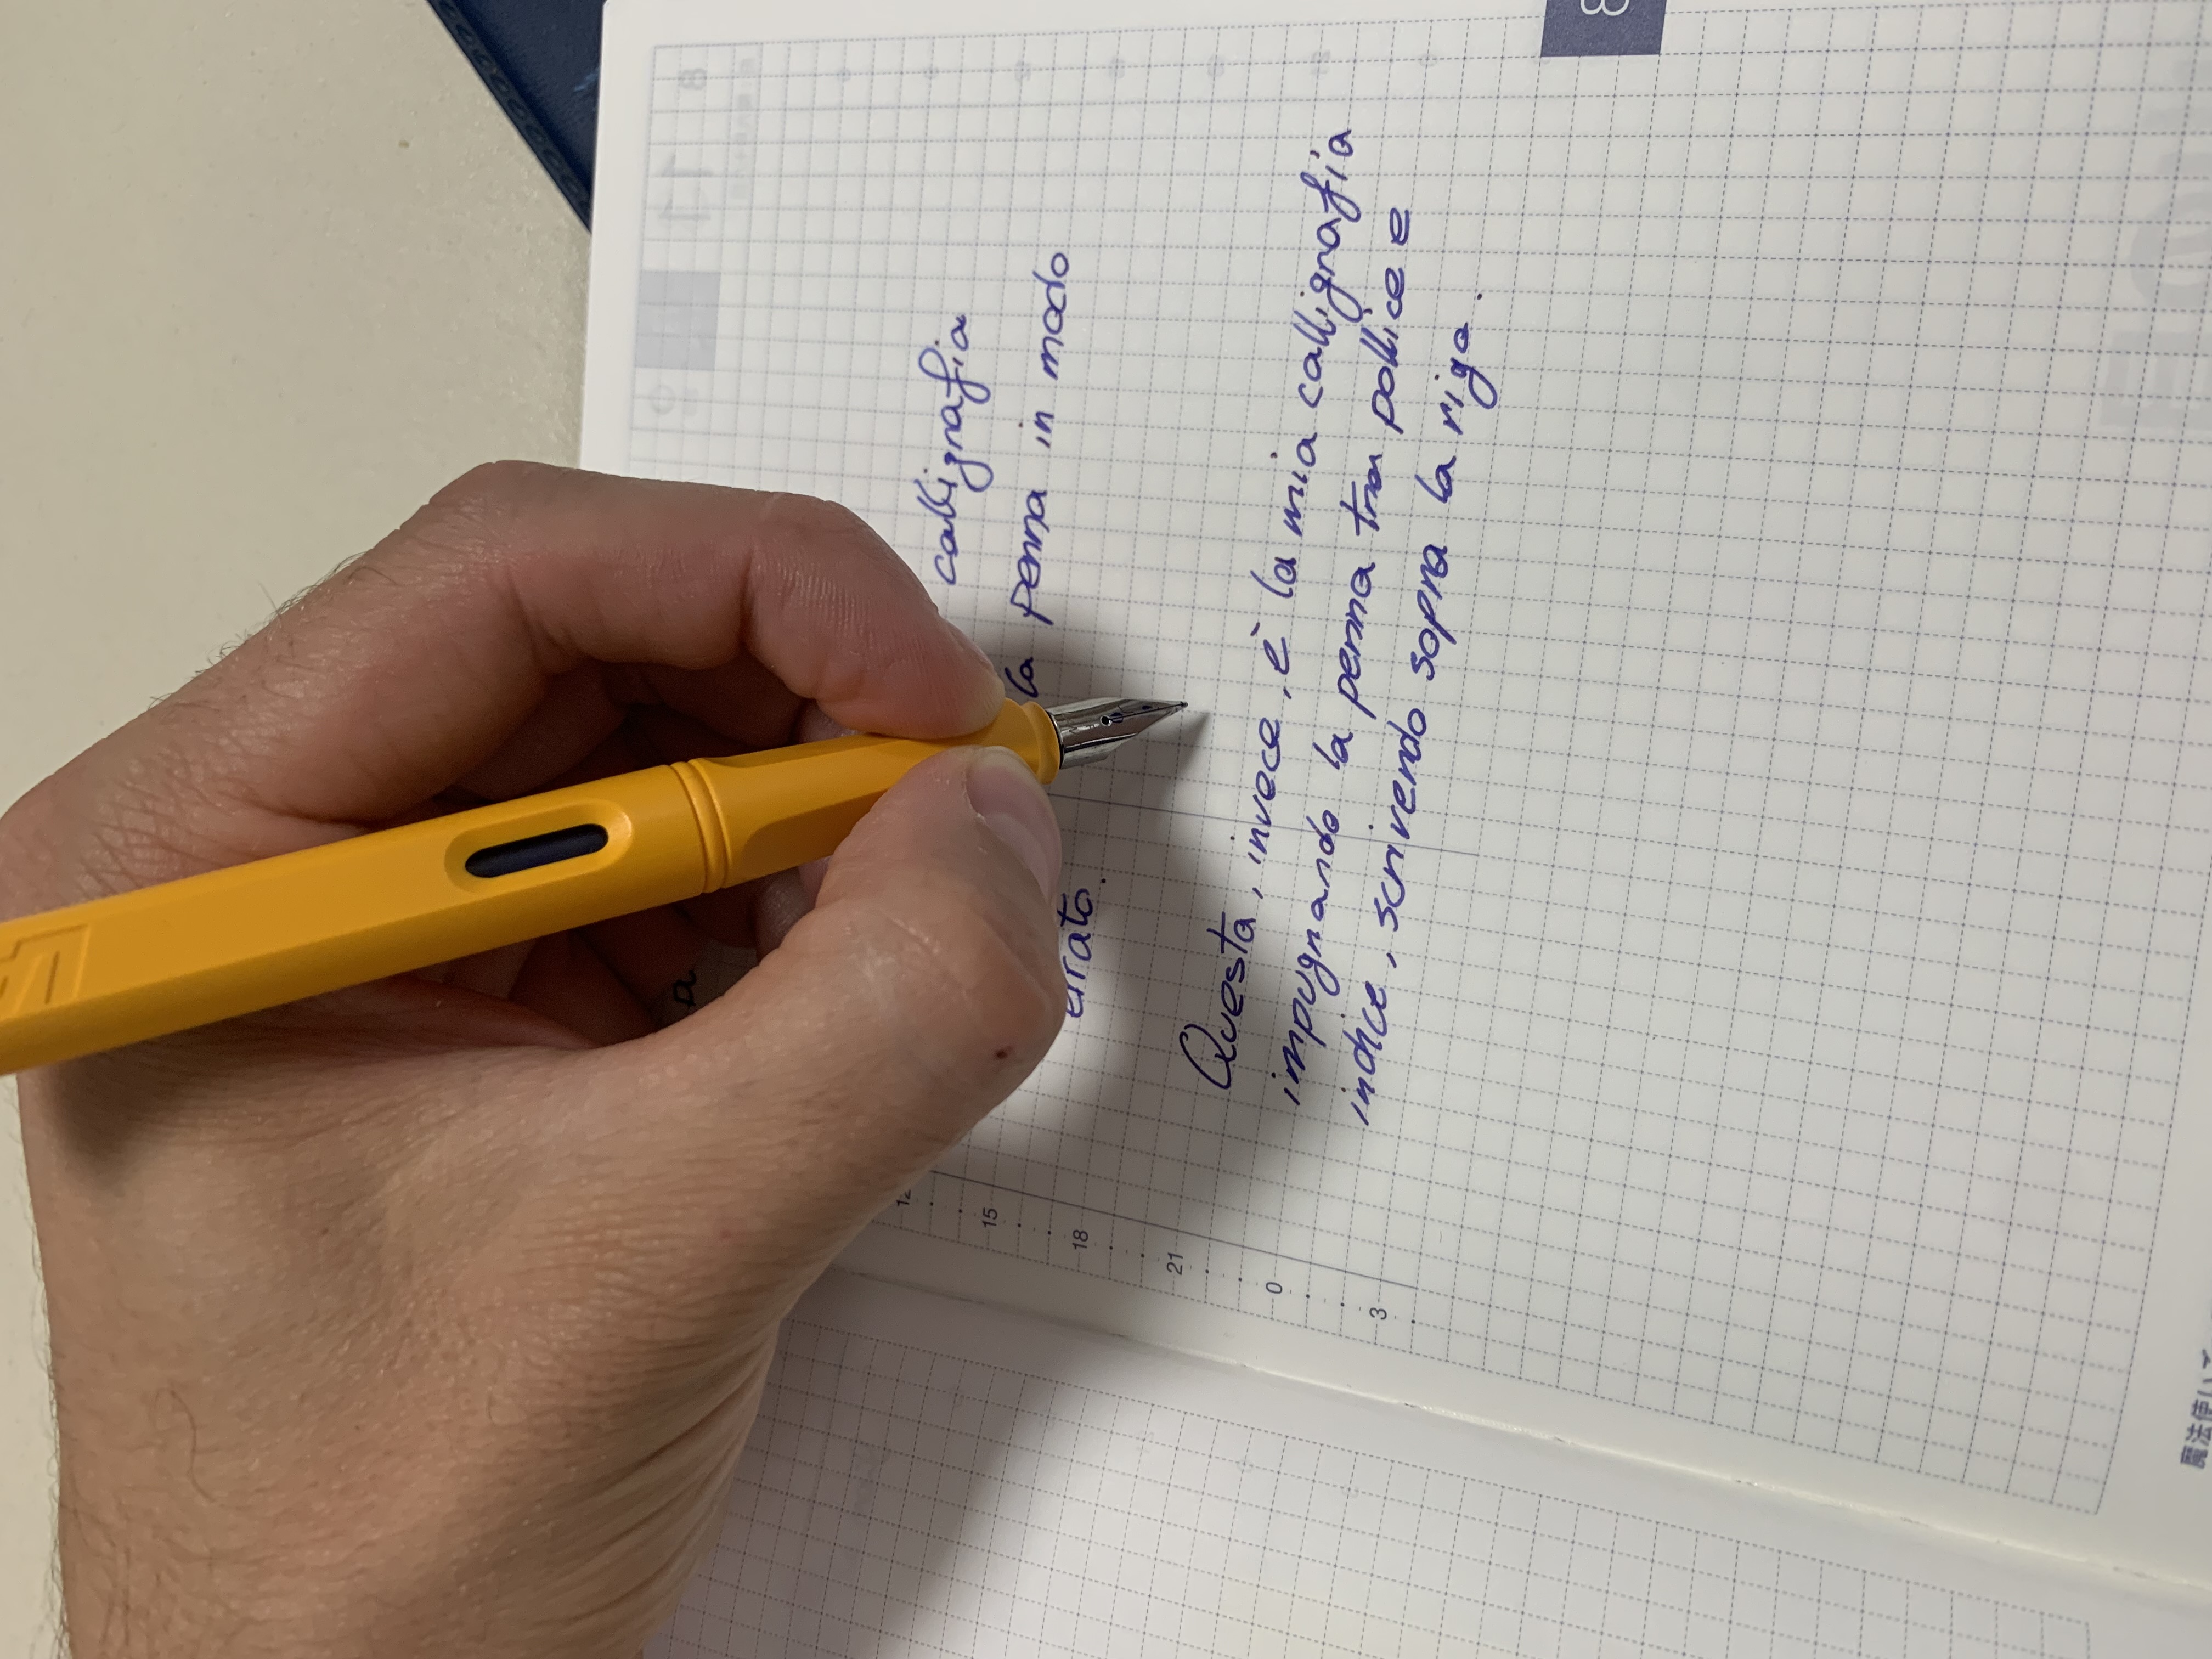 calligrafia
la penna in modo
errato.
Questa, invece, è la mia calligrafia
impugnando la penna tra pollice e
indice, scrivendo sopra la riga.
12
15
18
21
0
3
8
魔法使いて